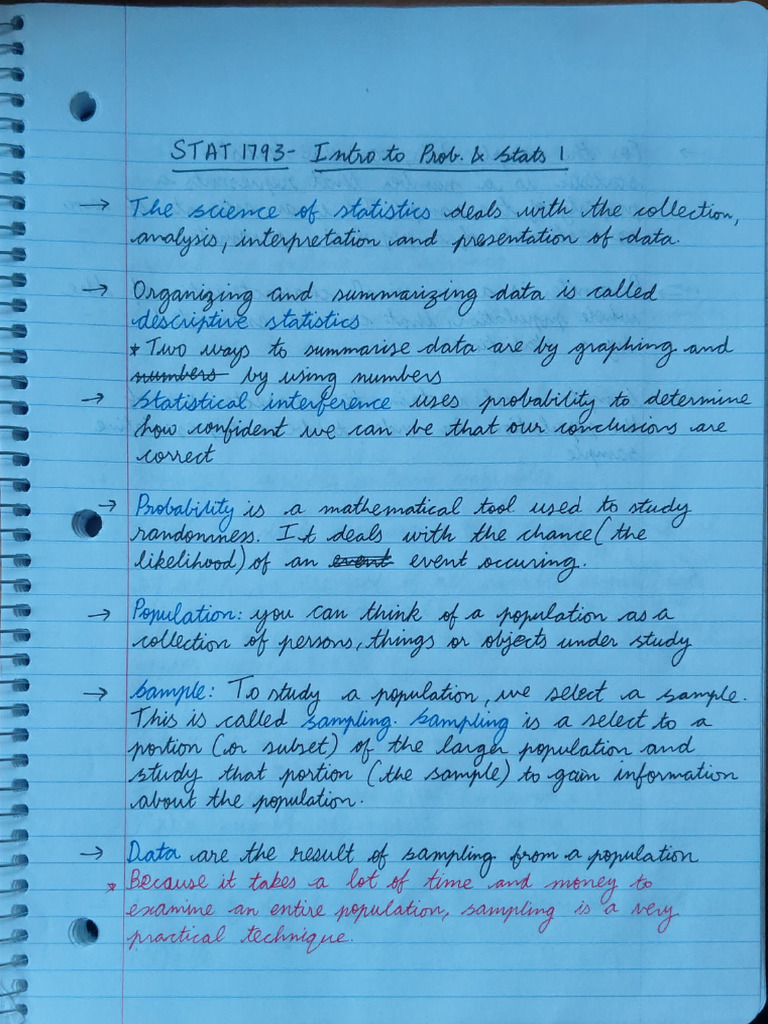 STAT 1793- Intro to Prob. & Stats 1
→ The science of statistics deals with the collection,
analysis, interpretation and presentation of data.
→ Organizing and summarizing data is called
descriptive statistics
* Two ways to summarise data are by graphing and
numbers by using numbers
→ Statistical interference uses probability to determine
how confident we can be that our conclusions are
correct
→ Probability is a mathematical tool used to study
randomness. It deals with the chance (the
likelihood) of an event event occuring.
→ Population: you can think of a population as a
collection of persons, things or objects under study
→ Sample: To study a population, we select a sample.
This is called sampling. Sampling is a select to a
portion (or subset) of the larger population and
study that portion (the sample) to gain information
about the population.
→ Data are the result of sampling from a population
* Because it takes a lot of time and money to
examine an entire population, sampling is a very
practical technique.